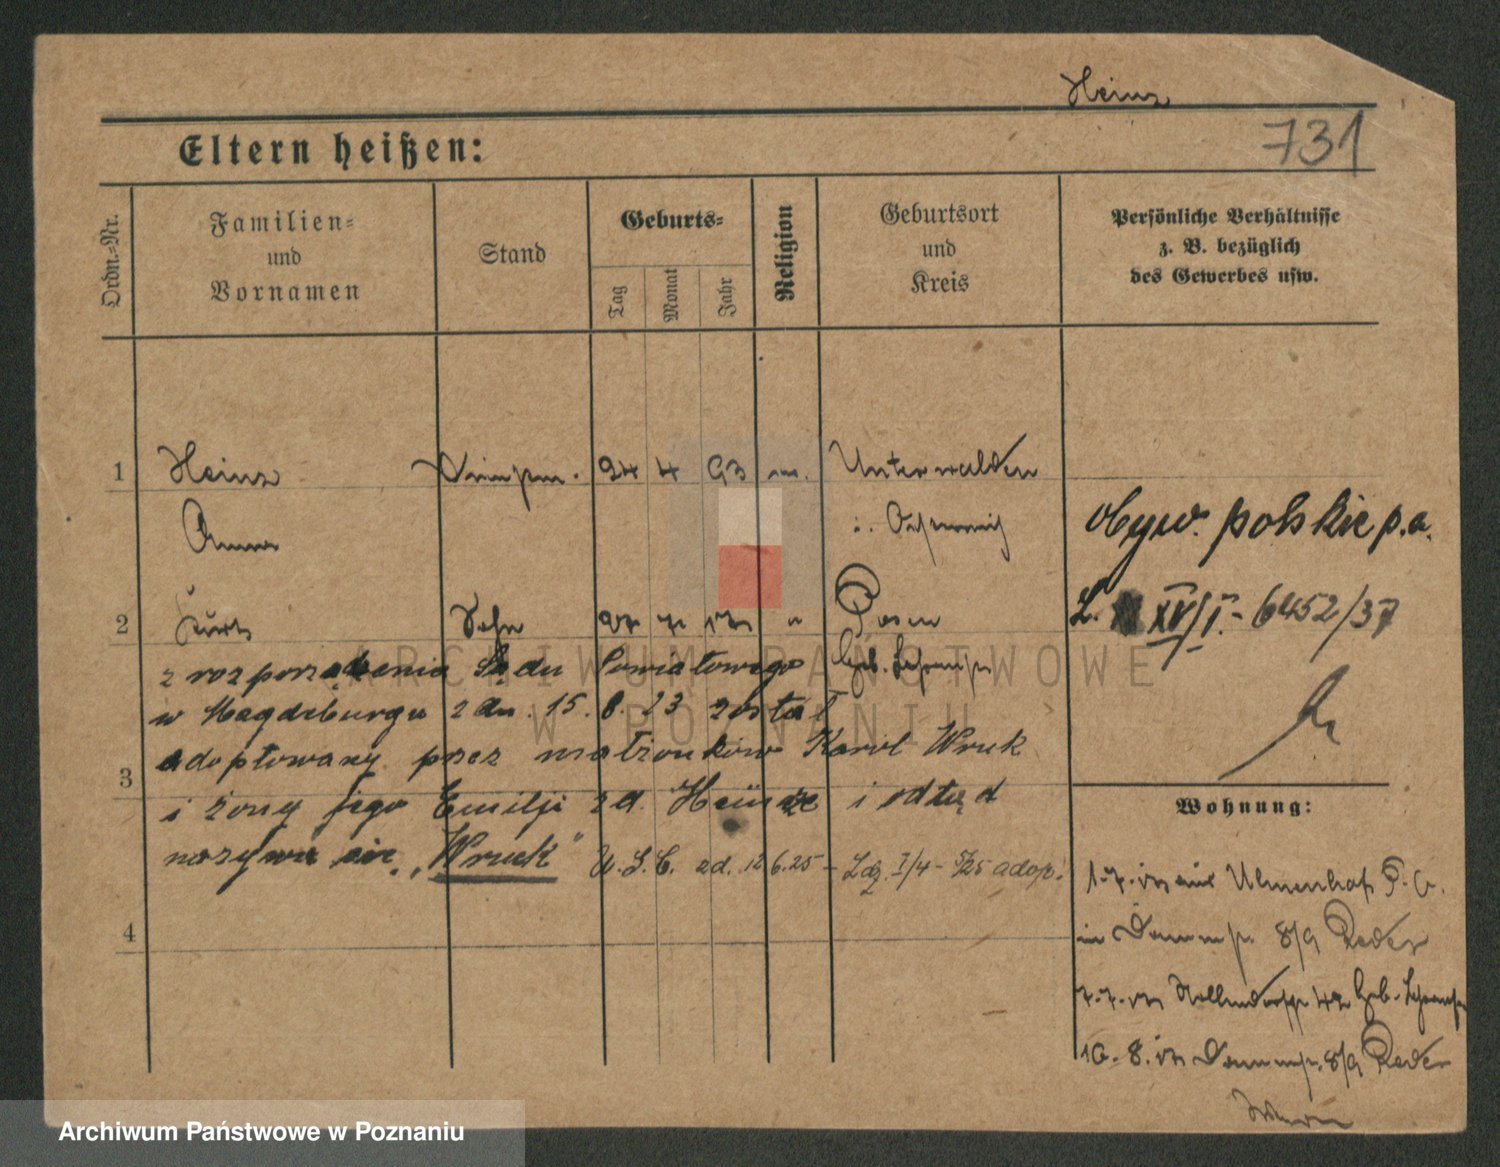 Heinz
731
Eltern heißen:
Ordn.-Nr.
Familien-
und
Vornamen
Stand
Geburts-
Tag
Monat
Jahr
Religion
Geburtsort
und
Kreis
Persönliche Verhältnisse
z. B. bezüglich
des Gewerbes usw.
1 Heinz 24 4 93 Unterwalden
Anna i. Österreich
obyw. polskie p.a.
2 Kurt Sohn 27 7 17 " Posen
L. XV/I - 6452/37
z rozporządzenia Sądu Powiatowego
w Magdeburgu z dn. 15.8.23 został
adoptowany przez małżonków Karol Wruk
3
i żony jego Emilji zd. Heinze i odtąd
nazywa się „Wruck"
U.S.C. zd. 12 6.25 - Ldz. I/4 - 5/25 adop.
4
Wohnung:
1.7.17 Ulmenhof
in 8/9 Reder
7.7.17 42
10.8.17 8/9 Reder
ARCHIWUM PAŃSTWOWE
W POZNANIU
Archiwum Państwowe w Poznaniu